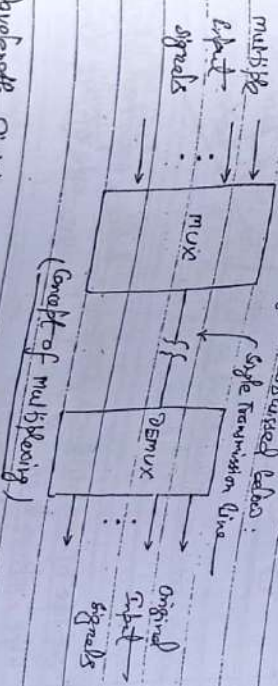 discussed below:
Multiple
Input
signals
MUX
Single Transmission line
DEMUX
Original
Input
signals
(Concept of multiplexing)
Wavelength